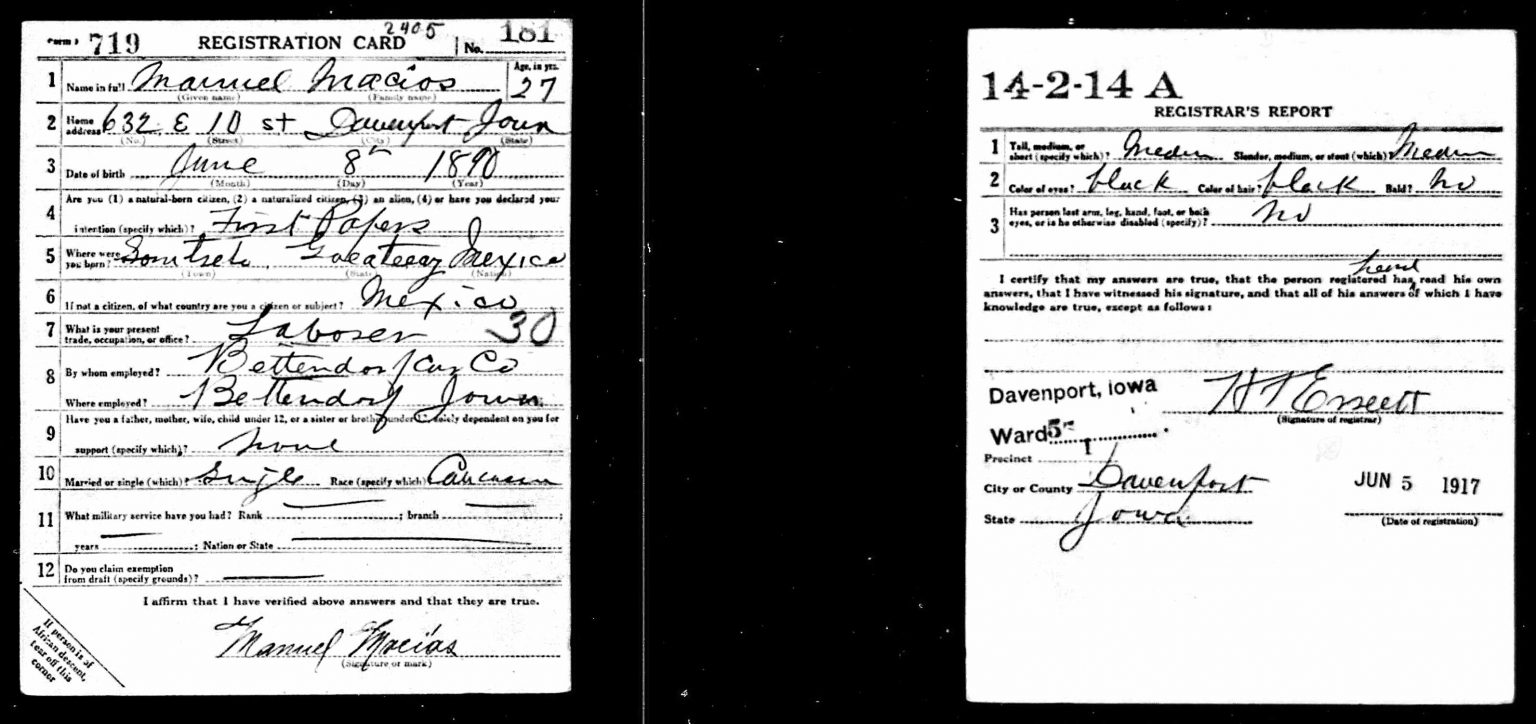 Form 1 719 REGISTRATION CARD 2405 No. 181
1 Name in full Manuel Macios Age, in yrs. 27
(Given name) (Family name)
2 Home address 632 E 10 st Davenport Iowa
(No.) (Street) (City) (State)
3 Date of birth June 8th 1890
(Month) (Day) (Year)
4 Are you (1) a natural-born citizen, (2) a naturalized citizen, (3) an alien, (4) or have you declared your
intention (specify which)? First Papers
5 Where were you born? Mexico
(Town) (State) (Nation)
6 If not a citizen, of what country are you a citizen or subject? Mexico
7 What is your present trade, occupation, or office? Laborer 30
8 By whom employed? Bettendorf Car Co
Where employed? Bettendorf Iowa
9 Have you a father, mother, wife, child under 12, or a sister or brother under 12, solely dependent on you for
support (specify which)? none
10 Married or single (which)? Single Race (specify which) Caucasian
11 What military service have you had? Rank ; branch ;
years ; Nation or State
12 Do you claim exemption
from draft (specify grounds)?
I affirm that I have verified above answers and that they are true.
Manuel Macias
(Signature or mark)
If person is of
African descent,
tear off this
corner
14-2-14 A
REGISTRAR'S REPORT
1 Tall, medium, or short (specify which)? Medium Slender, medium, or stout (which) Medium
2 Color of eyes? black Color of hair? black Bald? No
3 Has person lost arm, leg, hand, foot, or both
eyes, or is he otherwise disabled (specify)? No
I certify that my answers are true, that the person registered has heard read his own
answers, that I have witnessed his signature, and that all of his answers of which I have
knowledge are true, except as follows:
Davenport, Iowa
(Signature of registrar)
Ward 5
Precinct 1
City or County Davenport
JUN 5 1917
State Iowa
(Date of registration)